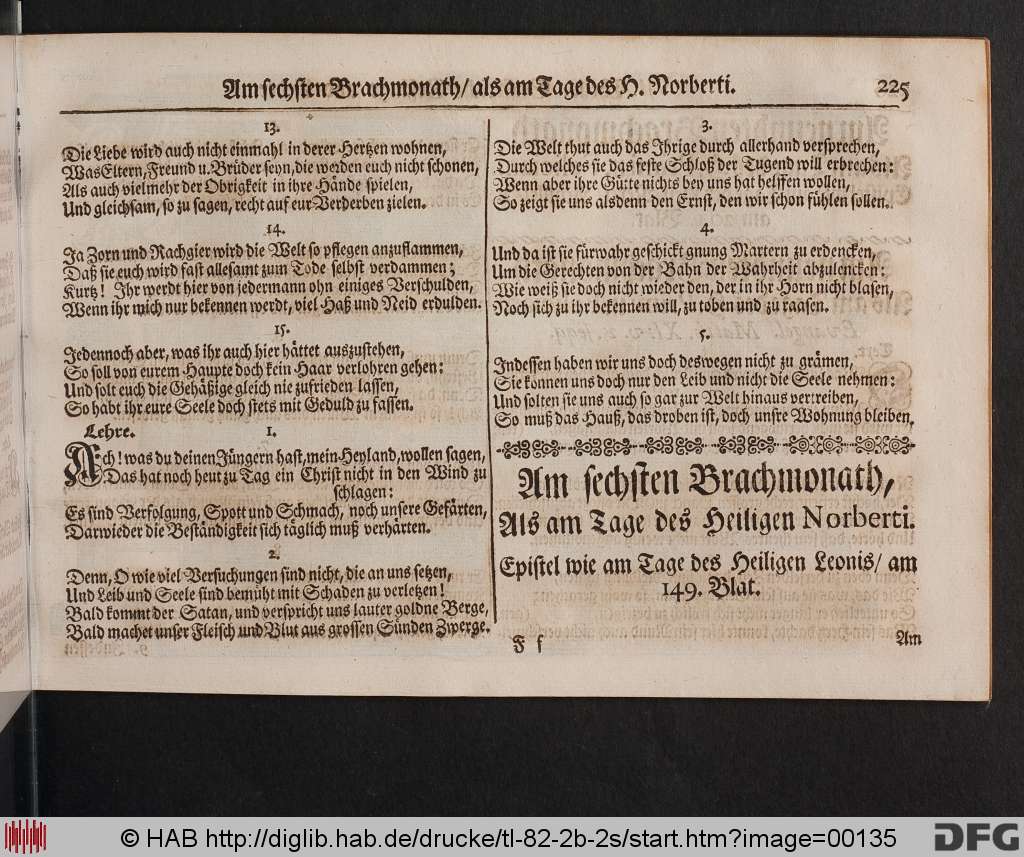 Am sechsten Brachmonath/ als am Tage des H. Norberti.
225
13.
Die Liebe wird auch nicht einmahl in derer Hertzen wohnen,
Was Eltern, Freund u. Brüder seyn, die werden euch nicht schonen,
Als auch vielmehr der Obrigkeit in ihre Hände spielen,
Und gleichsam, so zu sagen, recht auf eur Verderben zielen.
14.
Ja Zorn und Rachgier wird die Welt so pflegen anzuflammen,
Daß sie euch wird fast allesamt zum Tode selbst verdammen;
Kurtz! Ihr werdt hier von jedermann ohn einiges Verschulden,
Wenn ihr mich nur bekennen werdt, viel Haß und Neid erdulden.
15.
Jedennoch aber, was ihr auch hier hättet auszustehen,
So soll von eurem Haupte doch kein Haar verlohren gehen:
Und solt euch die Gehäßige gleich nie zufrieden lassen,
So habt ihr eure Seele doch stets mit Geduld zu fassen.
Lehre. 1.
Ach! was du deinen Jüngern hast, mein Heyland, wollen sagen,
Das hat noch heut zu Tag ein Christ nicht in den Wind zu
schlagen:
Es sind Verfolgung, Spott und Schmach, noch unsere Gefärten,
Darwieder die Beständigkeit sich täglich muß verhärten.
2.
Denn, O wie viel Versuchungen sind nicht, die an uns setzen,
Und Leib und Seele sind bemüht mit Schaden zu verletzen!
Bald kommt der Satan, und verspricht uns lauter goldne Berge,
Bald machet unser Fleisch und Blut aus grossen Sünden Zwerge.
3.
Die Welt thut auch das Ihrige durch allerhand versprechen,
Durch welches sie das feste Schloß der Tugend will erbrechen:
Wenn aber ihre Gütte nichts bey uns hat helffen wollen,
So zeigt sie uns alsdenn den Ernst, den wir schon fühlen sollen.
4.
Und da ist sie fürwahr geschickt gnung Martern zu erdencken,
Um die Gerechten von der Bahn der Wahrheit abzulencken:
Wie weiß sie doch nicht wieder den, der in ihr Horn nicht blasen,
Noch sich zu ihr bekennen will, zu toben und zu raasen.
5.
Indessen haben wir uns doch deswegen nicht zu grämen,
Sie konnen uns doch nur den Leib und nicht die Seele nehmen:
Und solten sie uns auch so gar zur Welt hinaus vertreiben,
So muß das Hauß, das droben ist, doch unsre Wohnung bleiben.
Am sechsten Brachmonath,
Als am Tage des Heiligen Norberti.
Epistel wie am Tage des Heiligen Leonis/ am
149. Blat.
F f
Am
© HAB http://diglib.hab.de/drucke/tl-82-2b-2s/start.htm?image=00135
DFG